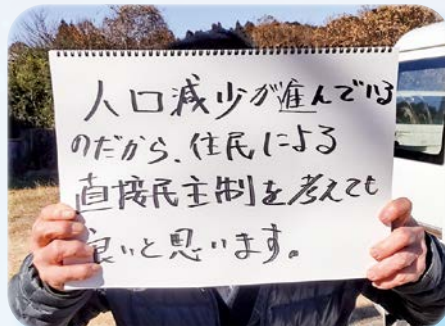 人口減少が進んでいる
のだから、住民による
直接民主制を考えても
良いと思います。